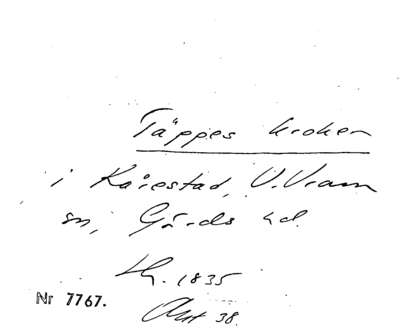 Täppes kroken
i Kårestad, V. Vram
sn, Gärds hd.
1835
Nr 7767.
Akt 38.